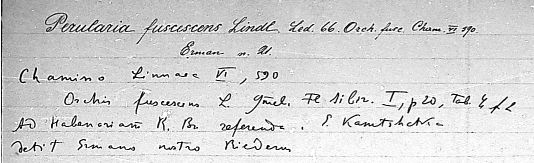 Perularia fuscescens Lindl. Led. 66. Orch. fusc. Cham. VI 590.
Erman n. U.
Chamisso Linnaea VI, 590
Orchis fuscescens L. Gmel. Fl. sibir. I, p 20, Tab. 4 f. 2
Ad Habenariam R. Br. referenda. E Kamtschatka
dedit Ermano nostro Riederus